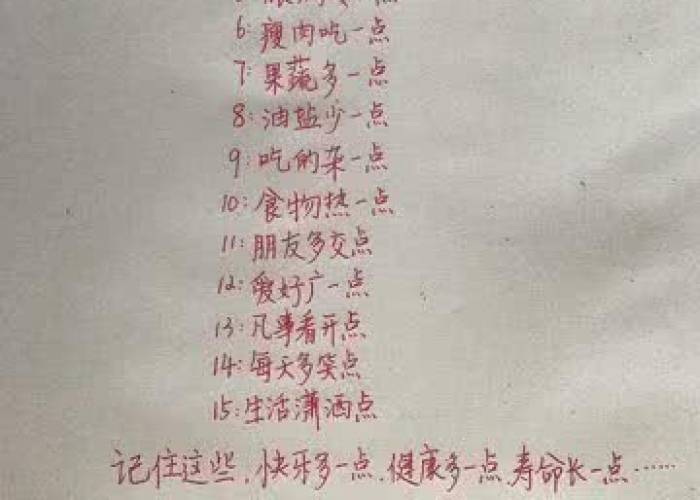 6:瘦肉吃一点
7:果蔬多一点
8:油盐少一点
9:吃的杂一点
10:食物热一点
11:朋友多交点
12:爱好广一点
13:凡事看开点
14:每天多笑点
15:生活潇洒点
记住这些.快乐多一点.健康多一点.寿命长一点……